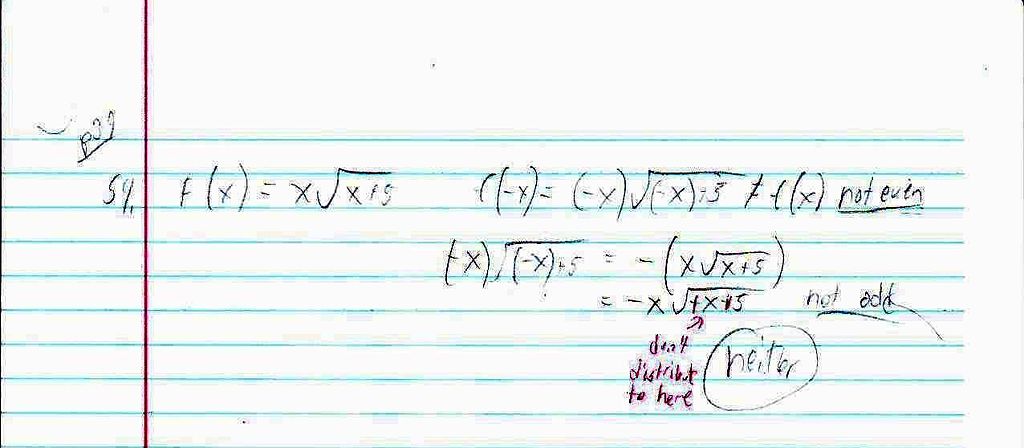 p39
59. f(x) = x√(x+5) f(-x) = (-x)√((-x)+5) ≠ f(x) not even
(-x)√((-x)+5) = -(x√(x+5))
= -x√(+x+5) not odd
don't
distribute
to here
neiter